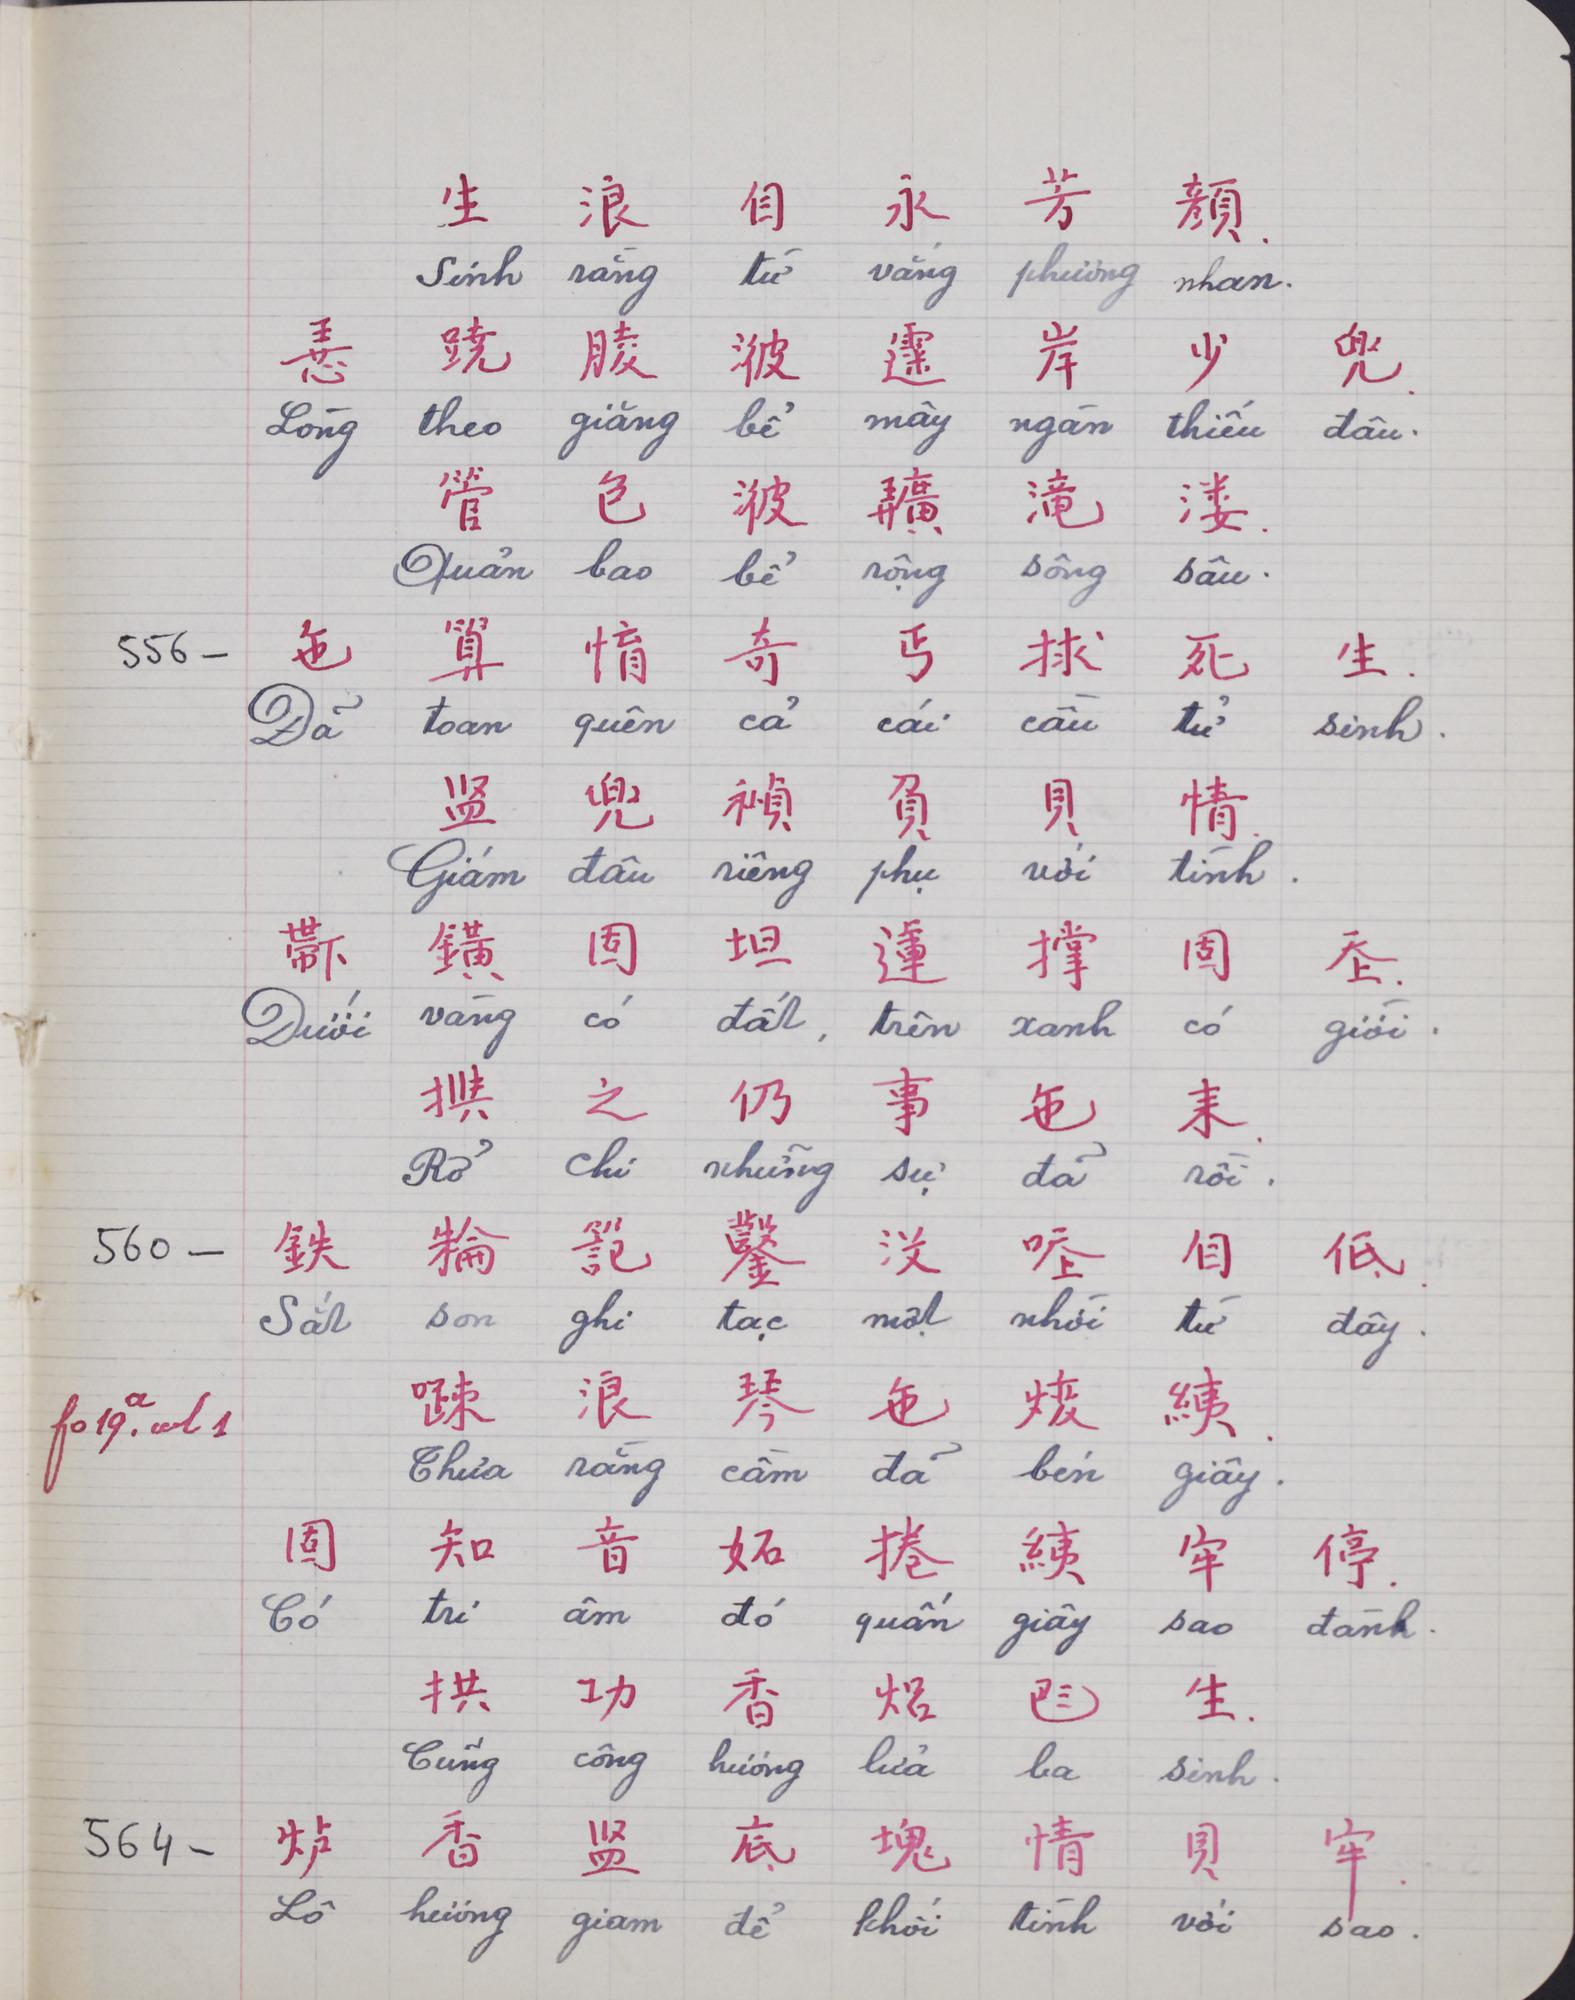 生 浪 自 永 芳 顔.
Sinh rằng từ vắng phương nhan.
蹺 𦝄 岸 少 兜.
Lòng theo giăng bể mây ngàn thiếu đâu.
管 包 瀌 滝 溇.
Quản bao bể rộng sông sâu.
556 – 㐌 算 惰 奇 丐 捄 死 生.
Đã toan quên cả cái cầu tử sinh.
监 兜 禎 負 貝 情.
Giám đâu riêng phụ với tình.
鐄 固 坦 撑 固 𡗶.
Dưới vàng có đất, trên xanh có giời.
之 仍 事 㐌 耒.
Rỡ chi những sự đã rồi.
560 – 鉄 鑿 沒 𠳒 自 低.
Sắt son ghi tạc một nhời từ đây.
浪 琴 㐌 焌 䋦.
fo 19.a col 1
Thưa rằng cầm đã bén giây.
固 知 音 妬 捲 䋦 牢 停.
Có tri âm đó quấn giây sao đành.
拱 功 香 焒 𠀧 生.
Cũng công hương lửa ba sinh.
564 – 炉 香 监 底 塊 情 貝 牢.
Lô hương giam để khối tình với sao.